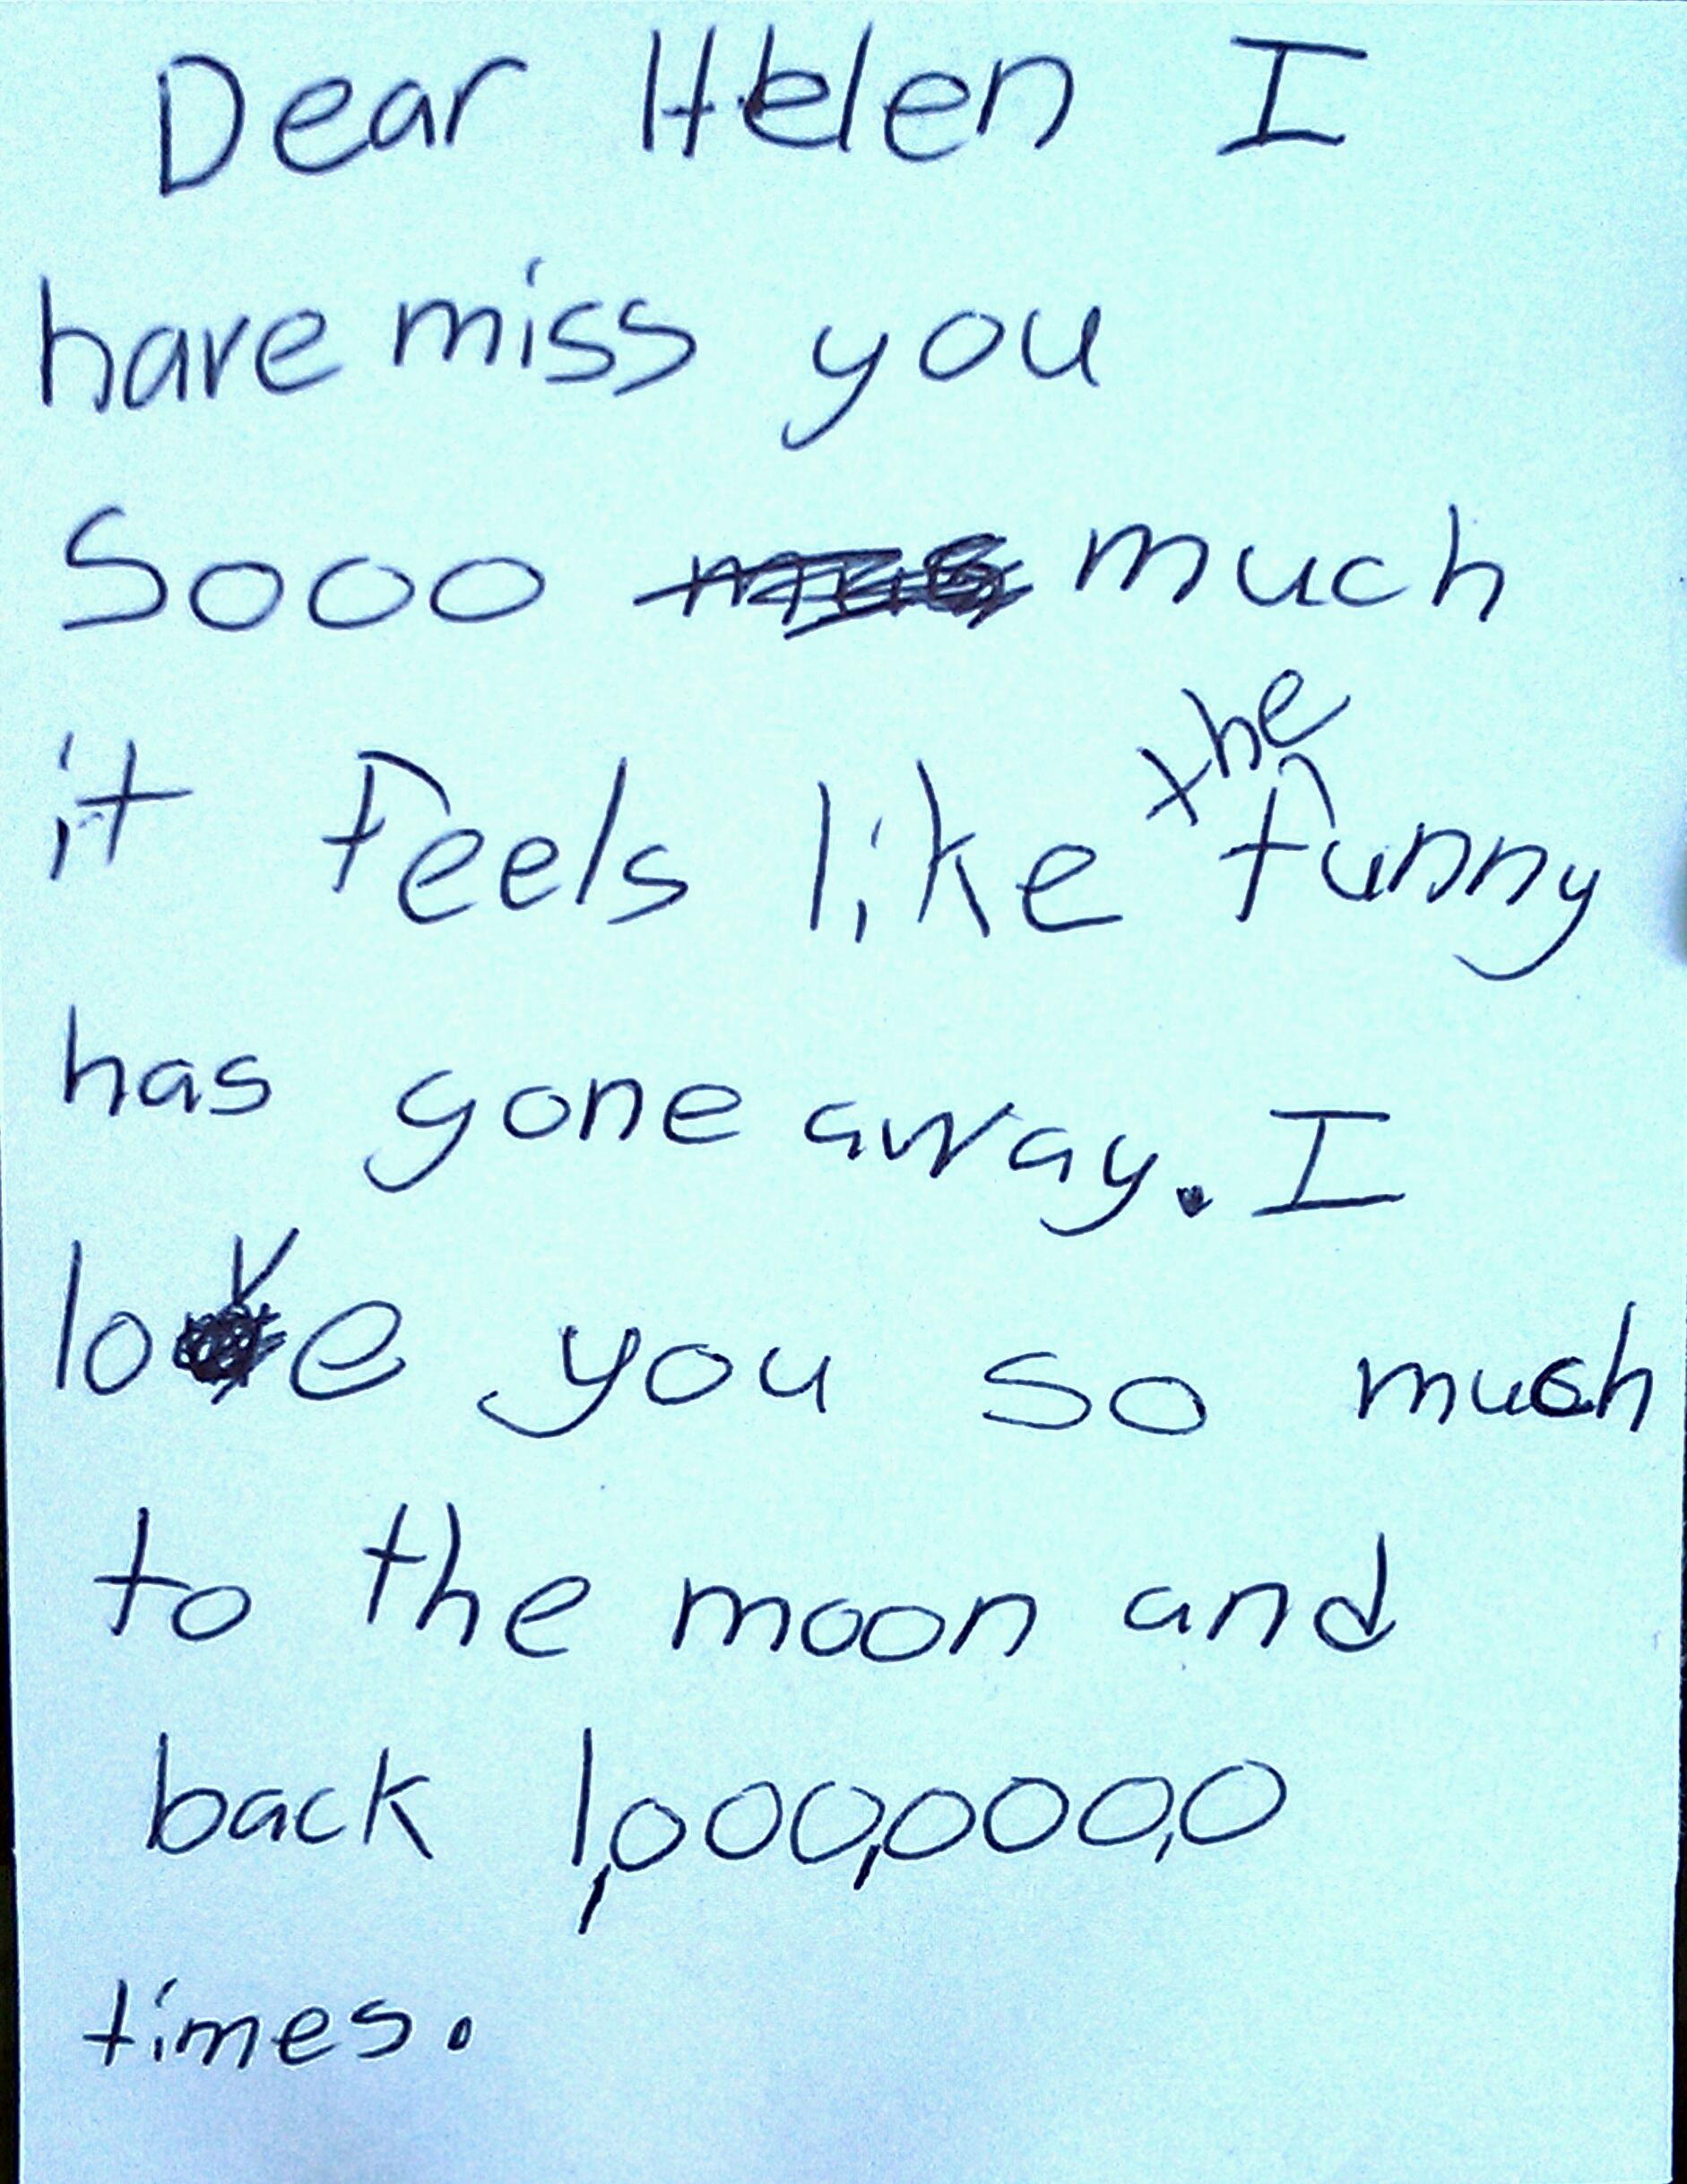 Dear Helen I
have miss you
Sooo much
it Feels like the funny
has gone away. I
love you so much
to the moon and
back 1,000,000,0
times.